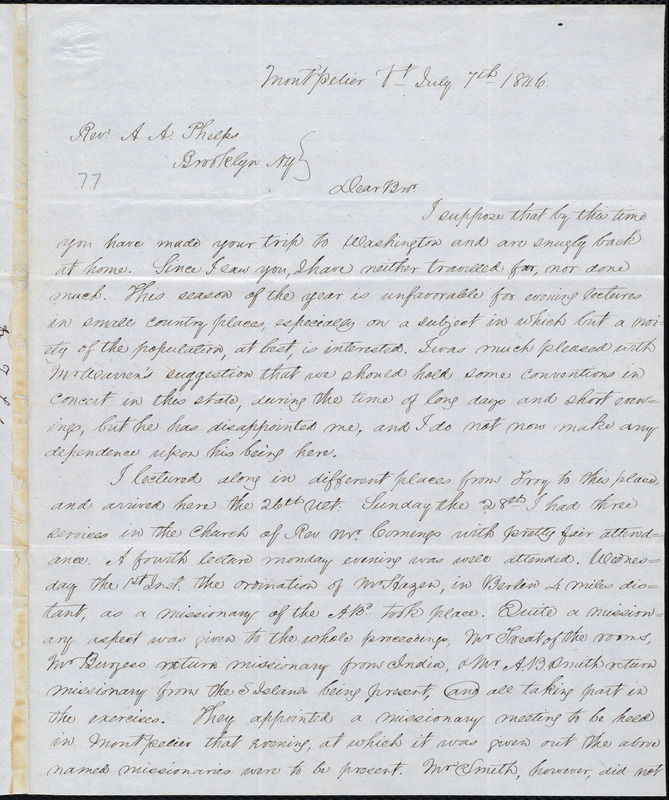 Montpelier Vt July 7th 1846.
Rev. A. A. Phelps
Brooklyn Ny
77
Dear Bro.
I suppose that by this time
you have made your trip to Washington and are snugly back
at home. Since I saw you, I have neither travelled far, nor done
much. This season of the year is unfavorable for evening lectures
in small country places, especially on a subject in which but a moi-
ety of the population, at best, is interested. I was much pleased with
suggestion that we should hold some conventions in
concert in this state, during the time of long days and short even-
ings, but he has disappointed me, and I do not now make any
dependence upon his being here.
I lectured along in different places from Troy to this place
and arrived here the 26th ult. Sunday the 28th I had three
services in the church of Rev Mr. Comings with pretty fair attend-
ance. A fourth lecture monday evening was well attended. Wednes-
day the 1st Inst. the ordination of Mr Hazen, in Berlin 4 miles dis-
tant, as a missionary of the A.B. took place. Quite a mission-
ary aspect was given to the whole proceedings, Mr Treat of the rooms,
Mr Burgess return missionary from India, & Mr. A. B Smith return
missionary from the S Islands being present, and all taking part in
the exercises. They appointed a missionary meeting to be held
in Montpelier that evening, at which it was given out the above
named missionaries were to be present. Mr Smith, however, did not